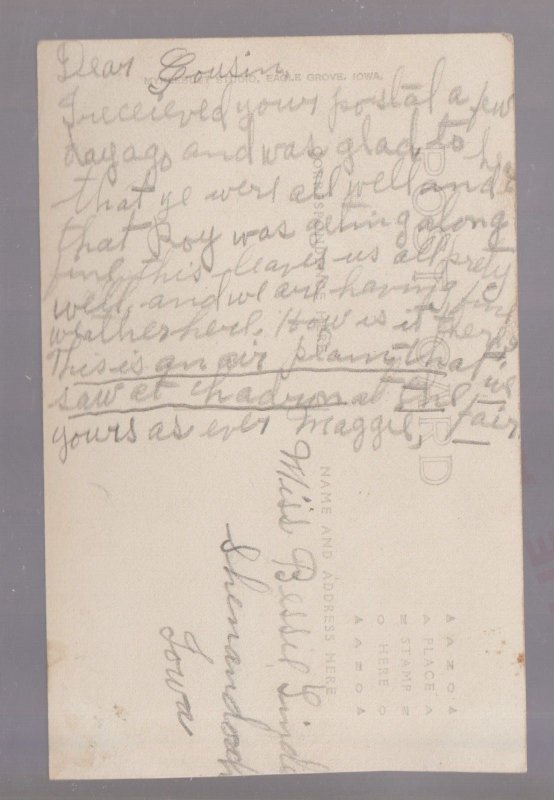 Dear Cousin,
I received your postal a few
days ago and was glad to hear
that ye were all well and
that Roy was acting along
fine, this leaves us all prety
well, and we are having fine
weather here. How is it there
This is an air plain that we
saw at Chadron at the fair
yours as ever Maggie,
EAGLE GROVE, IOWA.
POST CARD
CORRESPONDENCE HERE
NAME AND ADDRESS HERE
Miss Bessie
Shenandoah
Iowa
PLACE
STAMP
HERE